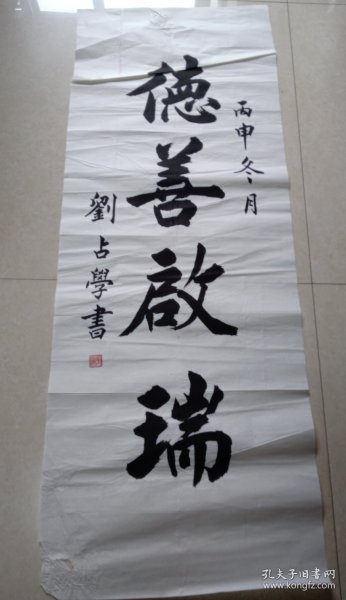 丙申冬月
德善啟瑞
劉占學書
孔夫子旧书网
www.kongfz.com